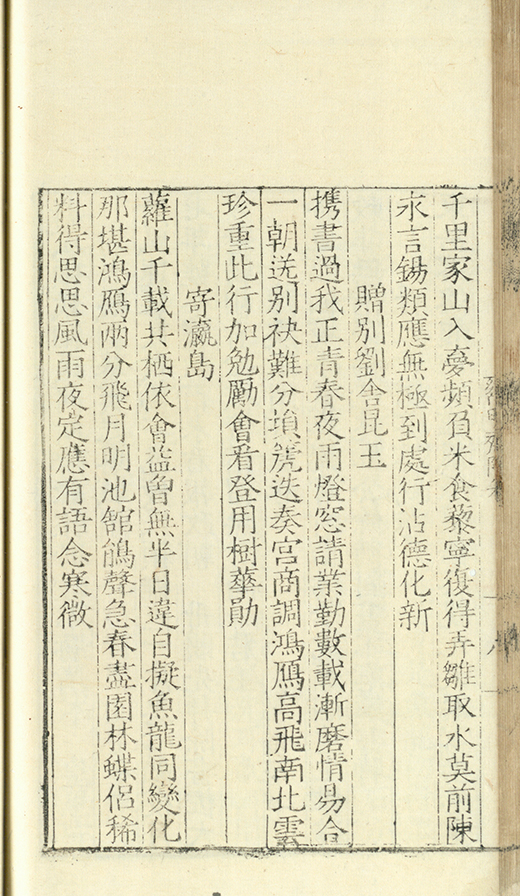 千里家山入夢頻負米食藜寧復得弄雛取水莫前陳
永言錫類應無極到處行沾德化新
贈別劉舍昆玉
携書過我正青春夜雨燈窓請業勤數載漸磨情易合
一朝送別袂難分塤箎迭奏宮商調鴻鴈高飛南北雲
珍重此行加勉勵會看登用樹華勛
寄瀛島
蘿山千載共栖依會益曾無半日違自擬魚龍同變化
那堪鴻鴈兩分飛月明池舘鵑聲急春盡園林蝶侶稀
料得思思風雨夜定應有語念寒微